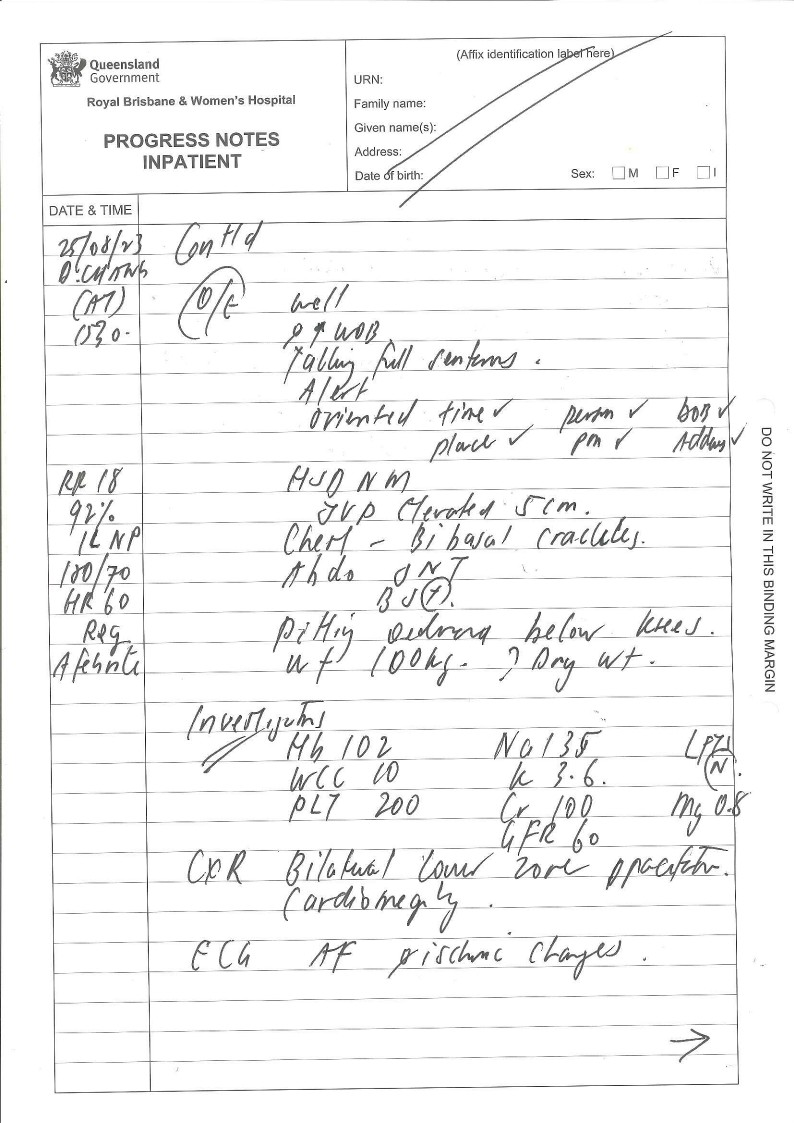 Queensland
Government
Royal Brisbane & Women's Hospital
PROGRESS NOTES
INPATIENT
(Affix identification label here)
URN:
Family name:
Given name(s):
Address:
Date of birth:
Sex: M F I
DATE & TIME
25/08/23 Cont'd
(AT) O/E well
1530. ↑ WOB
Talking full sentences.
Alert
oriented time ✓ person ✓ DOB ✓
place ✓ pm ✓ Address ✓
RR 18 HSDNM
92% JVP elevated 5cm.
1L NP Chest - Bibasal crackles.
180/70 Abdo SNT
HR 60 BS (+).
Reg Pitting oedema below knees.
Afebrile Wt 100kg. ? Dry wt.
Investigations
Hb 102 Na 135 LFTs
WCC 10 K 3.6. (N).
PLT 200 Cr 100 Mg 0.8
GFR 60
CXR Bilateral lower zone opacification.
Cardiomegaly.
ECG AF ischemic changes.
→
DO NOT WRITE IN THIS BINDING MARGIN